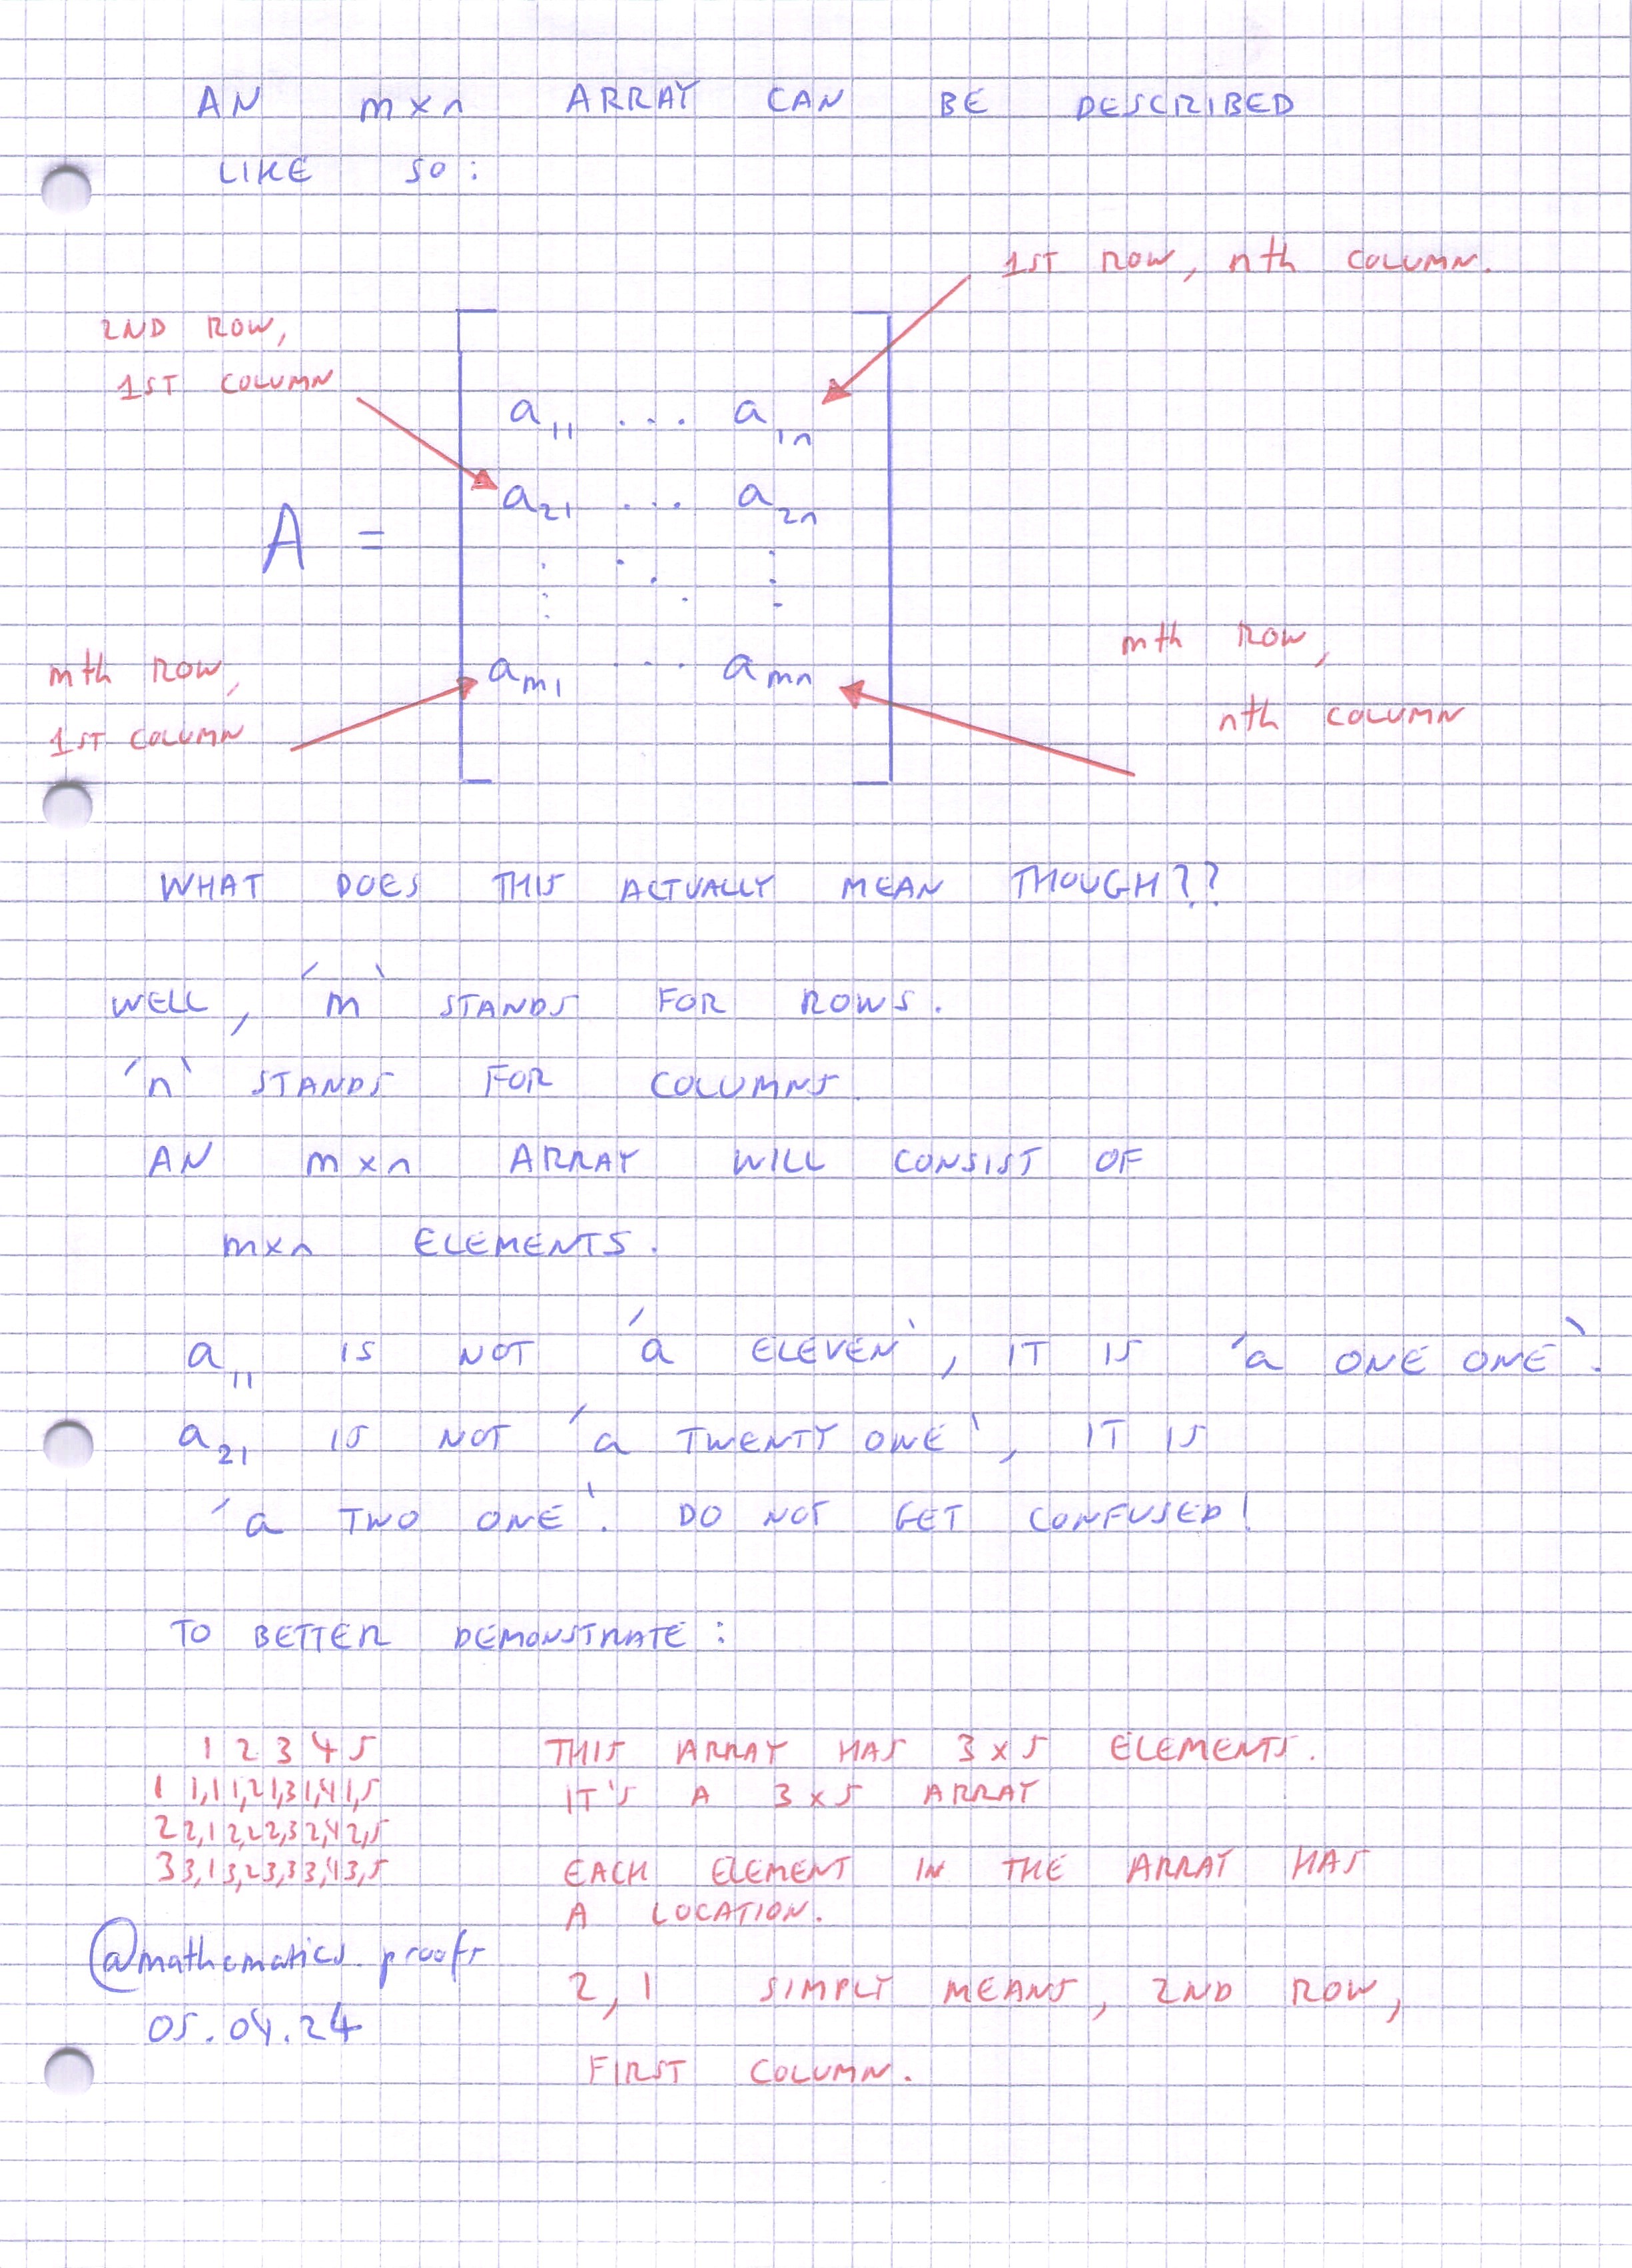 AN m×n ARRAY CAN BE DESCRIBED
LIKE SO:
1ST ROW, nth COLUMN.
2ND ROW,
1ST COLUMN
a11 ... a1n
a21 ... a2n
A =
mth ROW,
nth COLUMN
am1 ... amn
mth ROW,
1ST COLUMN
WHAT DOES THIS ACTUALLY MEAN THOUGH??
WELL, 'm' STANDS FOR ROWS.
'n' STANDS FOR COLUMNS.
AN m×n ARRAY WILL CONSIST OF
m×n ELEMENTS.
a11 IS NOT 'a ELEVEN', IT IS 'a ONE ONE'.
a21 IS NOT 'a TWENTY ONE', IT IS
'a TWO ONE'. DO NOT GET CONFUSED!
TO BETTER DEMONSTRATE:
1 2 3 4 5
1 1,1 1,2 1,3 1,4 1,5
2 2,1 2,2 2,3 2,4 2,5
3 3,1 3,2 3,3 3,4 3,5
THIS ARRAY HAS 3×5 ELEMENTS.
IT'S A 3×5 ARRAY
EACH ELEMENT IN THE ARRAY HAS
A LOCATION.
2,1 SIMPLY MEANS, 2ND ROW,
FIRST COLUMN.
@mathematics.proofs
05.04.24